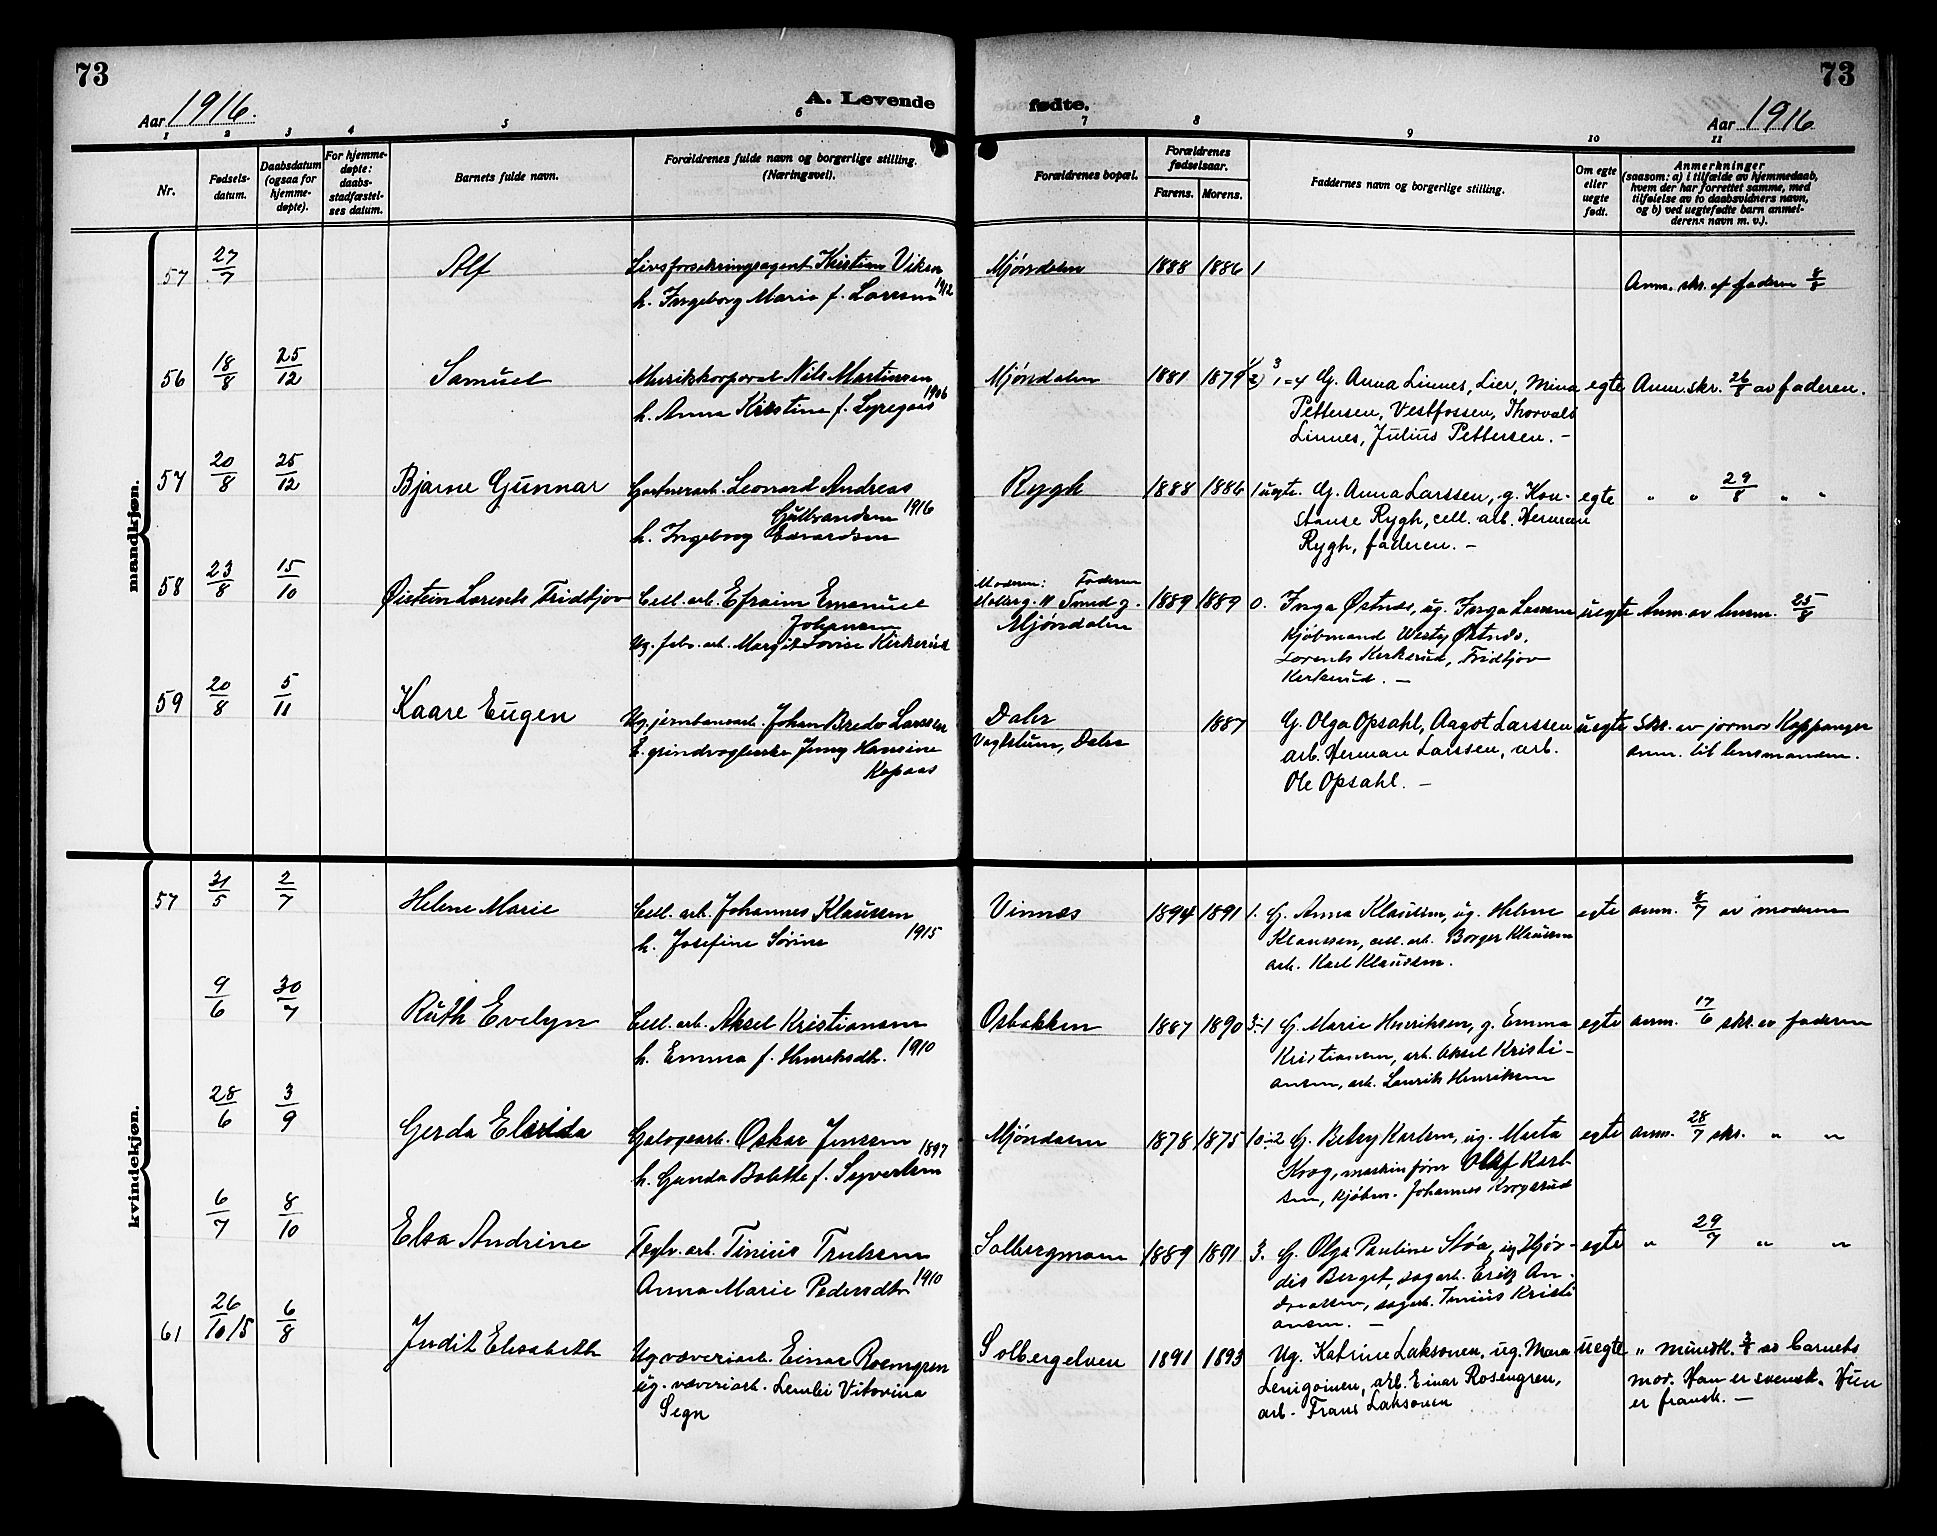 73
73
Aar 1916.
A. Levende
fødte.
Aar 1916
1 2 3 4 5 6 7 8 9 10 11
Nr.
Fødsels-
datum.
Daabsdatum
(ogsaa for
hjemme-
døpte).
For hjemme-
døpte:
daabs-
stadfæstel-
ses datum.
Barnets fulde navn.
Forældrenes fulde navn og borgerlige stilling.
(Næringsvei).
Forældrenes bopæl.
Forældrenes
fødselsaar.
Farens. Morens.
Faddernes navn og borgerlige stilling.
Om egte
eller
uegte
født.
Anmerkninger
(saasom: a) i tilfælde av hjemmedaab,
hvem der har forrettet samme, med
tilføielse av to daabsvidners navn,
og b) ved uegtefødte barn anmel-
derens navn m. v.).
mandkjøn.
57 27/7 Alf
Livsforsikringsagent Kristian Viken
h. Ingeborg Marie f. Larsen 1912
Mjöndalen 1888 1886 1
Anm. skr. af faderen 8/8
56 18/8 25/12 Samuel
Musikkorporal Nils Martinsen
h. Anna Kirstine f. Lyregaas 1906
Mjöndalen 1881 1879
1/2) 3 1=4 G. Anna Linnes, Lier, Mina
Pettersen, Vestfossen, Thorvald
Linnes, Julius Pettersen. –
egte Anm. skr. 26/8 av faderen.
57 20/8 25/12 Bjarne Gunnar
Gartnerarb. Leonard Andreas
Gulbrandsen 1916
h. Ingeborg Edvardsen
Rygh 1888 1886
1 uegte. G. Anna Larssen, g. Kon-
stanse Rygh, cell. arb. Herman
Rygh, faderen. –
egte " " 29/8 " "
58 23/8 15/10 Øistein Lorents Fridtjov
Cell. arb. Efraim Emanuel
Johansen
Ug. fabr. arb. Margit Lovise Kirkerud
Moderen: Faderen
Mjöndalen
1889 1889
0. Inga Østnes, ug. Inga Larsen
Kjöbmand Westy Østnes,
Lorents Kerkerud, Fridtjov
Kerkerud. –
uegte Anm. av lensm. 25/8
59 20/8 5/11 Kaare Eugen
Ug. jernbanearb. Johan Bredo Larssen
Jenny Hansine
Kopaas
Daler
1887
G. Olga Opsahl, Aagot Larssen
arb. Herman Larssen, arb.
Ole Opsahl. –
uegte Skr. av jormor Koppanger
anm. til lensmanden.
kvindekjøn.
57 31/5 2/7 Helene Marie
Cell. arb. Johannes Klausen
h. Josefine Sörine 1915
Vinnes 1894 1891
1. G. Anna Klausen, ug. Helene
Klaussen, cell. arb. Borger Klausen
arb. Karl Klaussen.
egte anm. 8/7 av moderen
9/6 30/7 Ruth Evelyn
Cell. arb. Aksel Kristiansen
h. Emma f. Henriksdtr. 1910
Osbakken 1887 1890
3–1 G. Marie Henriksen, g. Emma
Kristiansen, arb. Aksel Kristi-
ansen, arb. Laurits Henriksen
egte anm. 17/6 skr. av faderen
28/6 3/9 Gerda Elvida
Galogearb. Oskar Jensen 1897
h. Gunda Bolette f. Syvertsen
Mjöndalen 1878 1875
10–2 G. Betzy Karlsen, ug. Marta
Krog, maskinförer Olaf Karl-
sen, kjöbm. Johannes Krogsrud
egte anm. 28/7 skr. " "
6/7 8/10 Elsa Andrine
Teglv. arb. Tinius Trulsen
Anna Marie Pedersdtr 1910
Solbergmoen 1889 1891
3. G. Olga Pauline Stöa, ug Hjör-
dis Berget, sagarb. Erik An-
dreassen, sagarb. Tinius Kristi
ansen. –
egte " 29/7 " "
61 26/10 15 6/8 Judit Elisabeth
Ug væveriarb. Einar Rosengren
ug. væveriarb. Lembi Vitorina
Segn
Solbergelven 1891 1893
Ug. Katrine Laksonen, ug. Mara
Lenigoinen, arb. Einar Rosengren,
arb. Frans Laksonen
uegte " mundtl. 3/8 av barnets
mor. Han er svensk. Hun
er fransk. –